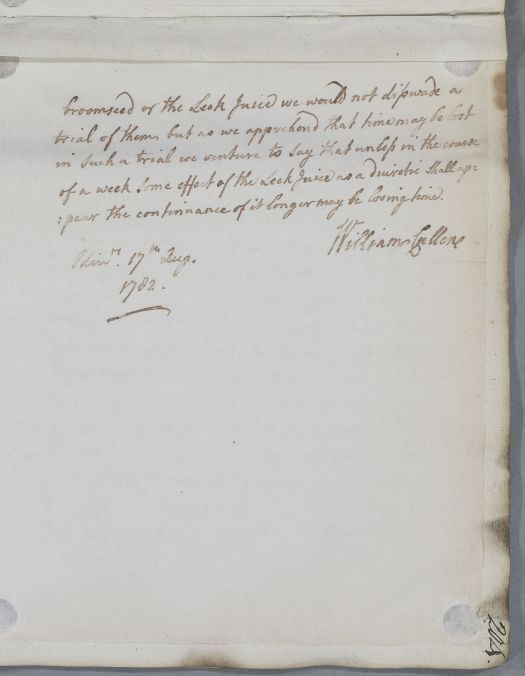 broomseed or the Leek Juice we would not disswade a
trial of them, but as we apprehend that time may be lost
in such a trial we venture to say that unless in the course
of a week some effect of the Leek Juice as a diuretic shall ap:
:pear the continuance of it longer may be losing time.
William Cullen
Edinr. 17th Aug.
1782.